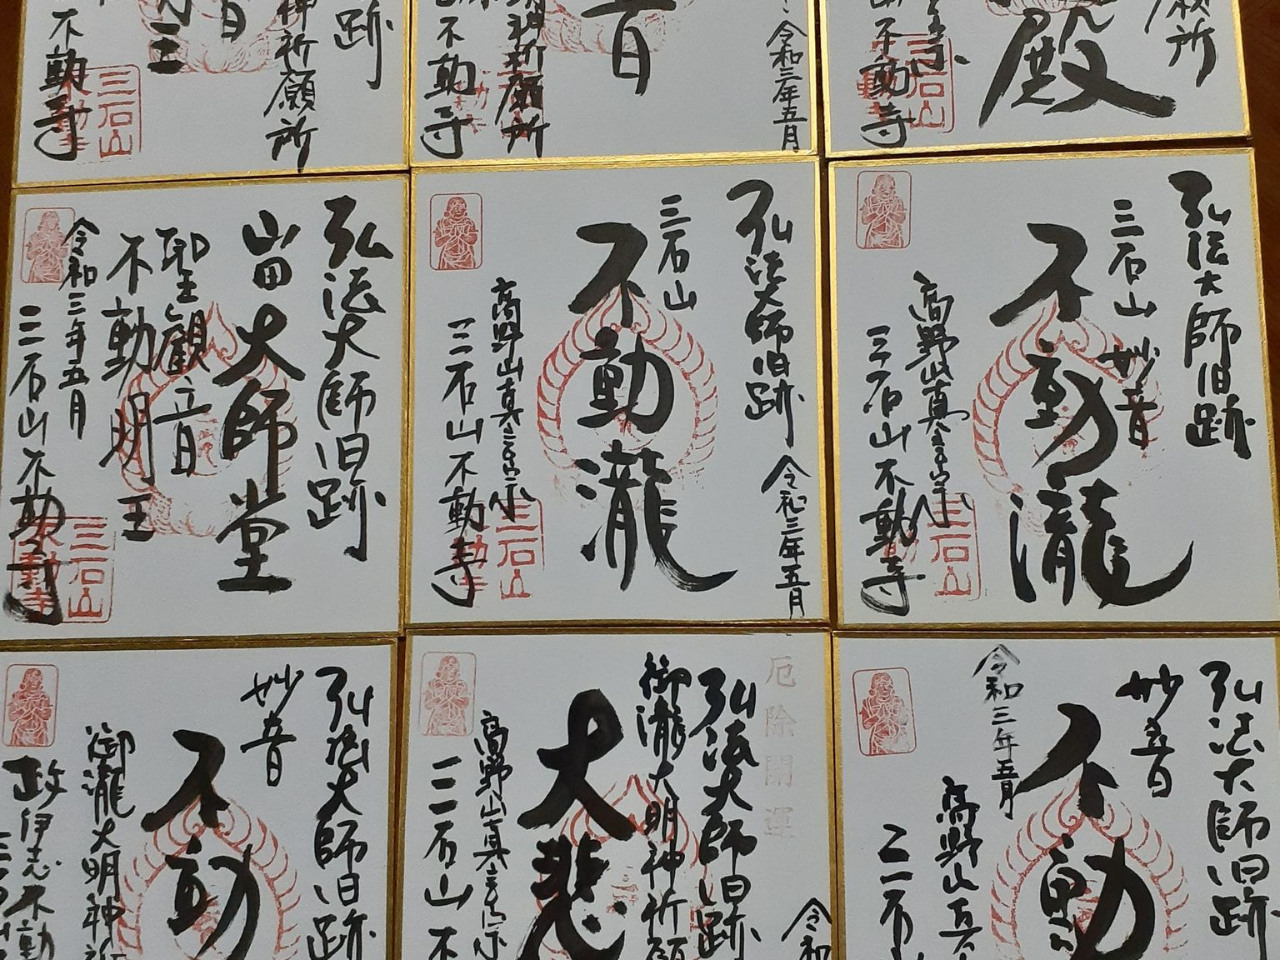 跡
神祈願所
音
王
不動寺
三石山
令和三年五月
音
神祈願所
不動寺
願所
殿
不動寺
三石山
弘法大師旧跡
大師堂
聖観音
不動明王
令和三年五月
三石山不動寺
三石山
弘法大師旧跡
令和三年五月
三石山
不動瀧
高野山真言宗
三石山不動寺
三石山
弘法大師旧跡
三石山
妙音
不動瀧
高野山真言宗
三石山不動寺
三石山
弘法大師旧跡
妙音
不動
御瀧大明神祈
伊志不動
厄除開運
弘法大師旧跡
御瀧大明神祈願
大悲
高野山真言宗
三石山不
令和
弘法大師旧跡
妙音
不動
令和三年五月
高野山真
三石